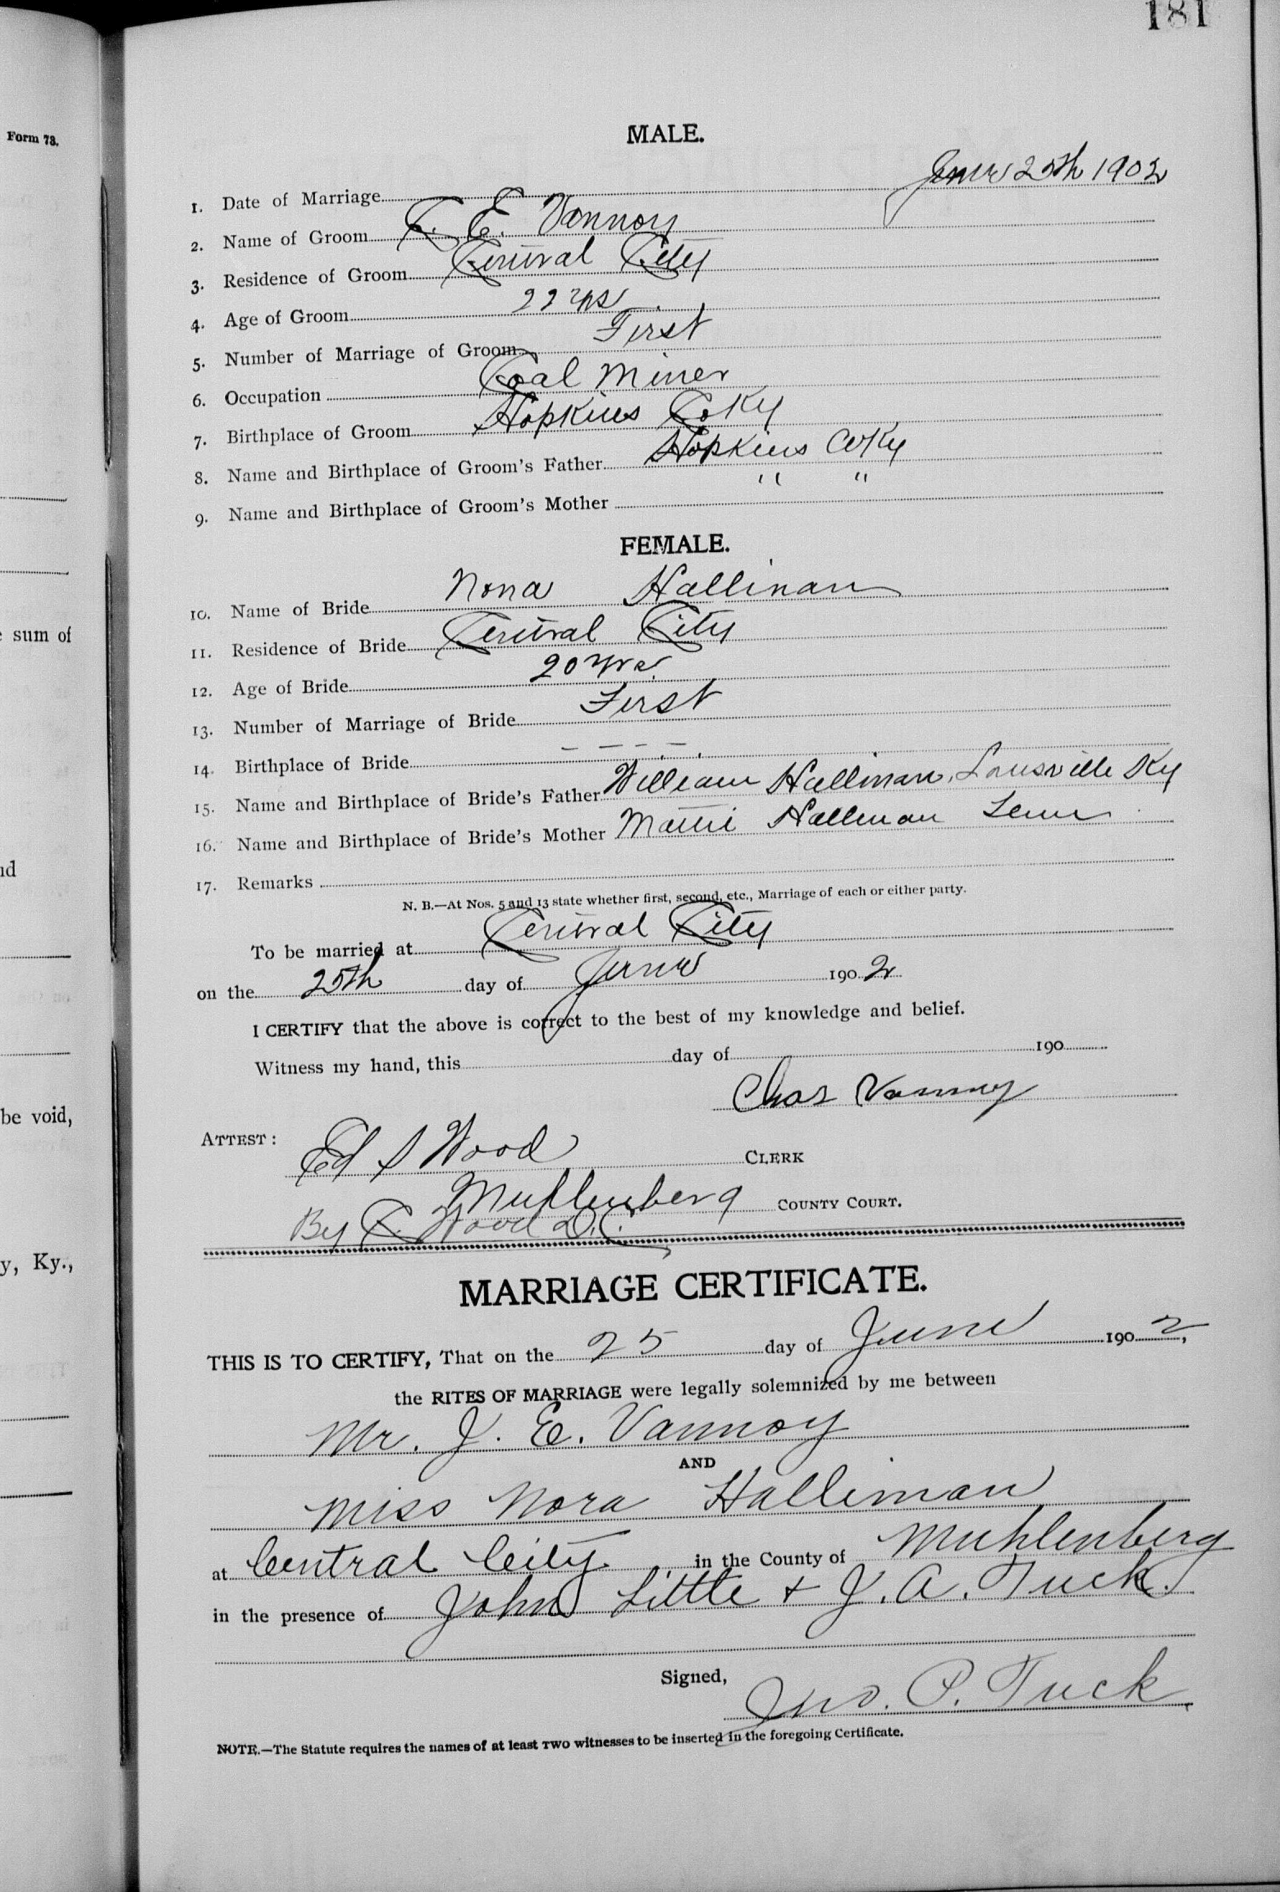 181
Form 73.
MALE.
1. Date of Marriage June 25th 1902
2. Name of Groom C. E. Vannoy
3. Residence of Groom Central City
4. Age of Groom 22 yrs
5. Number of Marriage of Groom First
6. Occupation Coal Miner
7. Birthplace of Groom Hopkins Co Ky
8. Name and Birthplace of Groom's Father Hopkins Co Ky
9. Name and Birthplace of Groom's Mother " "
FEMALE.
10. Name of Bride Nona Hallinan
11. Residence of Bride Central City
12. Age of Bride 20 yrs
13. Number of Marriage of Bride First
14. Birthplace of Bride - - - -
15. Name and Birthplace of Bride's Father William Hallinan, Lousville Ky
16. Name and Birthplace of Bride's Mother Mattie Hallinan Tenn
17. Remarks
N. B.—At Nos. 5 and 13 state whether first, second, etc., Marriage of each or either party.
e sum of
To be married at Central City
on the 25th day of June 1902
I CERTIFY that the above is correct to the best of my knowledge and belief.
Witness my hand, this day of 190
Chas Vannoy
be void,
ATTEST: Ed S Wood CLERK
Muhlenberg COUNTY COURT.
By C. Wood D.C.
y, Ky.,
MARRIAGE CERTIFICATE.
THIS IS TO CERTIFY, That on the 25 day of June 1902,
the RITES OF MARRIAGE were legally solemnized by me between
Mr. J. E. Vannoy
AND
Miss Nora Halliman
at Central City. in the County of Muhlenberg
in the presence of John Little + J. A. Tuck.
Signed,
Jno. P. Tuck.
NOTE.—The Statute requires the names of at least TWO witnesses to be inserted in the foregoing Certificate.